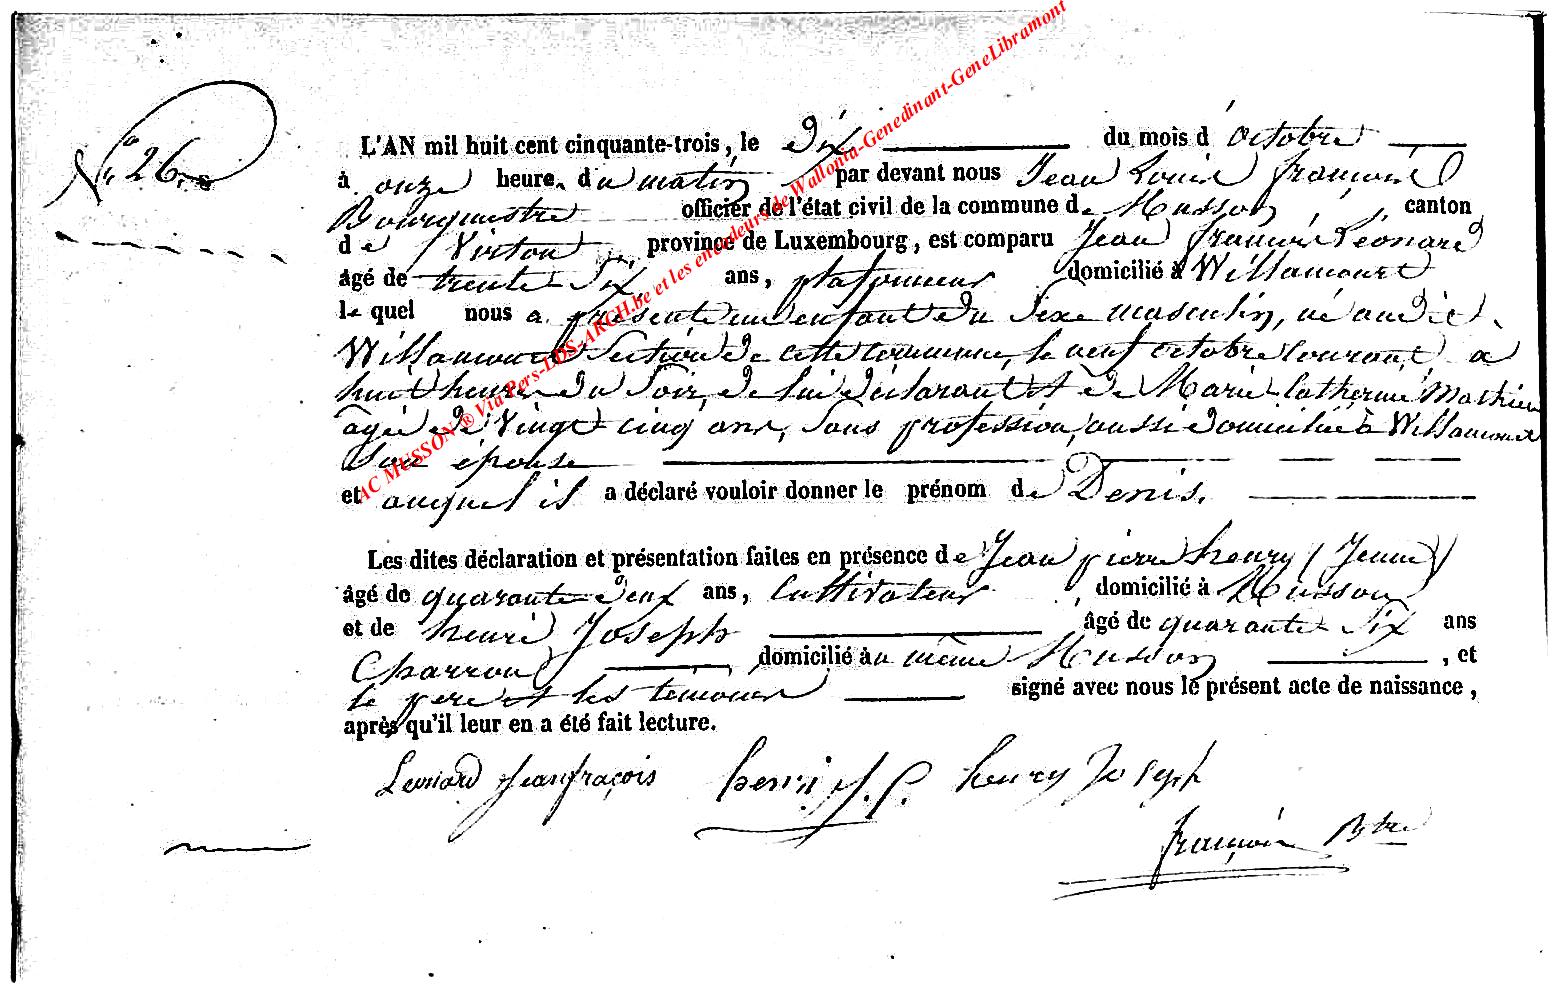 N° 26.
L'AN mil huit cent cinquante-trois, le Dix du mois d'octobre
à onze heure. du matin par devant nous Jean Louis françois
Bourguestre officier de l'état civil de la commune de Musson, canton
de Virton, province de Luxembourg, est comparu Jean françois Léonard
âgé de trente Six ans, plafonneur domicilié à Willancourt
le quel nous a présenté un enfant du Sexe masculin, né audit
Willancourt Section de cette commune, le neuf octobre courant, a
huit heures du Soir, de lui déclarant et de Marie Catherine Mathieu
âgée de Vingt cinq ans, Sans profession, aussi domiciliée à Willancourt
Son épouse
et auquel il a déclaré vouloir donner le prénom de Denis.
Les dites déclaration et présentation faites en présence de Jean pierre henry (Jeune)
âgé de quarante deux ans, Cultivateur, domicilié à Musson
et de henri Joseph âgé de quarante Six ans
Charron domicilié au même Musson, et
le pere et les témoins signé avec nous le présent acte de naissance,
après qu'il leur en a été fait lecture.
Leonard Jeanfraçois henri J. P. henry Joseph
françois Btre
AC MUSSON ® Via Pers-LDS-ARCH.be et les encodeurs de Wallonia-Genedinant-GeneLibramont